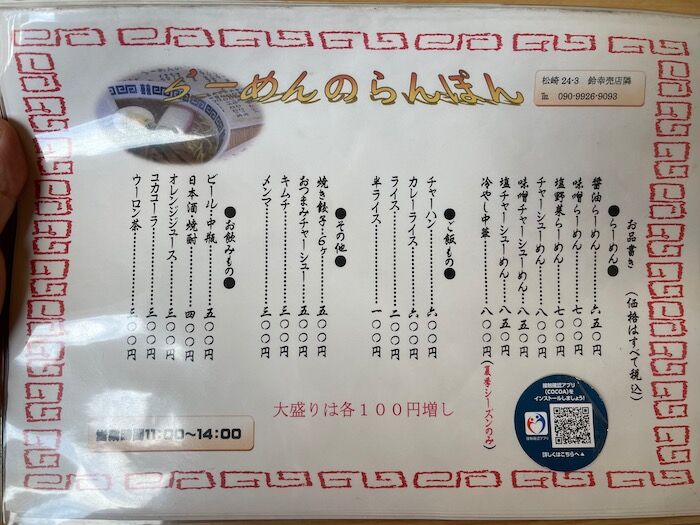 らーめんのらんぽん
松崎 24-3　鈴幸売店隣
℡　090-9926-9093
お品書き　（価格はすべて税込）
●らーめん●
醤油らーめん………六五〇円
味噌らーめん………七〇〇円
塩野菜らーめん……七〇〇円
チャーシューめん…八〇〇円
味噌チャーシューめん…八五〇円
塩チャーシューめん…八五〇円
冷やし中華………八〇〇円（夏季シーズンのみ）
●ご飯もの●
チャーハン………六〇〇円
カレーライス………六〇〇円
ライス………二〇〇円
半ライス………一〇〇円
●その他●
焼き餃子・6ヶ………五〇〇円
おつまみチャーシュー…五〇〇円
キムチ………三〇〇円
メンマ………三〇〇円
●お飲みもの●
ビール・中瓶………五〇〇円
日本酒・焼酎………四〇〇円
オレンジジュース………三〇〇円
コカコーラ………三〇〇円
ウーロン茶………三〇〇円
大盛りは各１００円増し
営業時間11:00～14:00
接触確認アプリ
(COCOA)を
インストールしましょう!
接触確認アプリ
詳しくはこちらへ▲